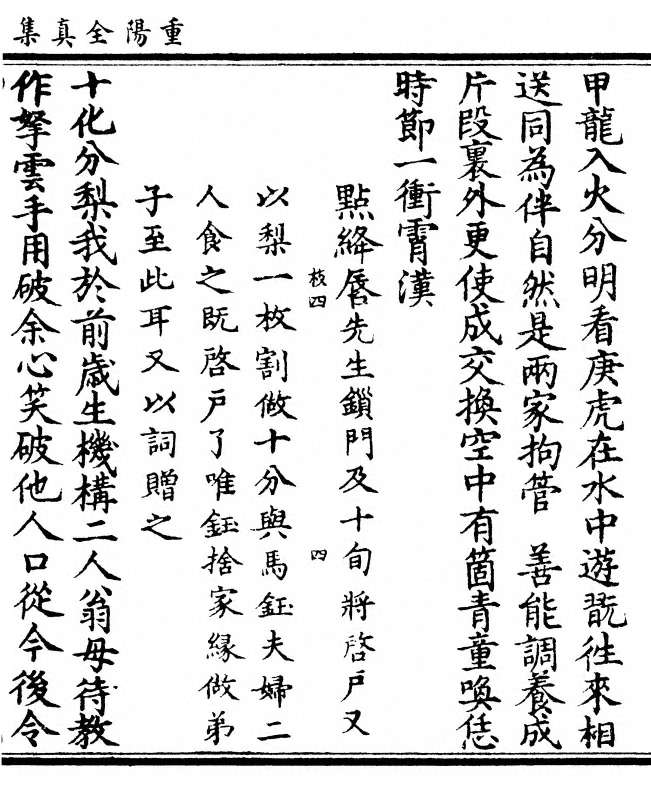 重陽全真集
甲龍入火分明看庚虎在水中遊翫徃來相
送同為伴自然是兩家拘管　善能調養成
片段裏外更使成交換空中有箇青童喚恁
時節一衝霄漢
點絳唇先生鎖門及十旬將啓戶又
枝四
四
以梨一枚割做十分與馬鈺夫婦二
人食之既啓戶了唯鈺捨家緣做弟
子至此耳又以詞贈之
十化分梨我於前歲生機構二人翁母待教
作拏雲手用破余心笑破他人口從今後令